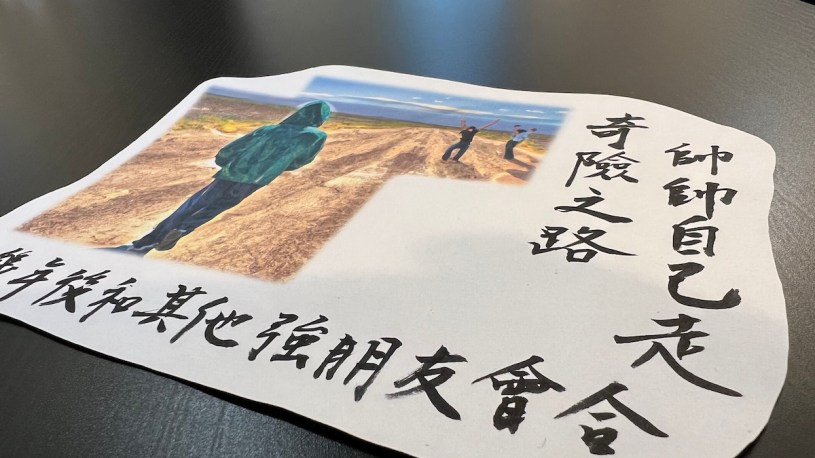 帥帥自己走
奇險之路
年後和其他強朋友會合